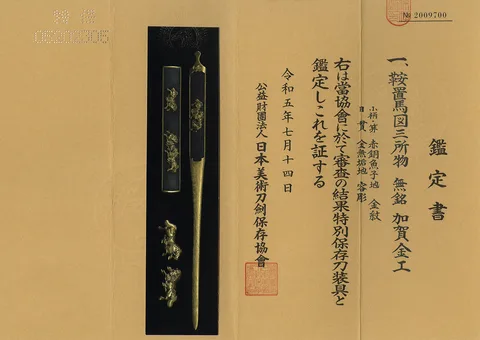 № 2009700
鑑定書
一、鞍置馬図三所物 無銘 加賀金工
小柄・笄 赤銅魚子地 金紋
目貫 金無垢地 容彫
右は當協會に於て審査の結果特別保存刀装具と
鑑定しこれを証する
令和五年七月十四日
公益財團法人 日本美術刀剣保存協會